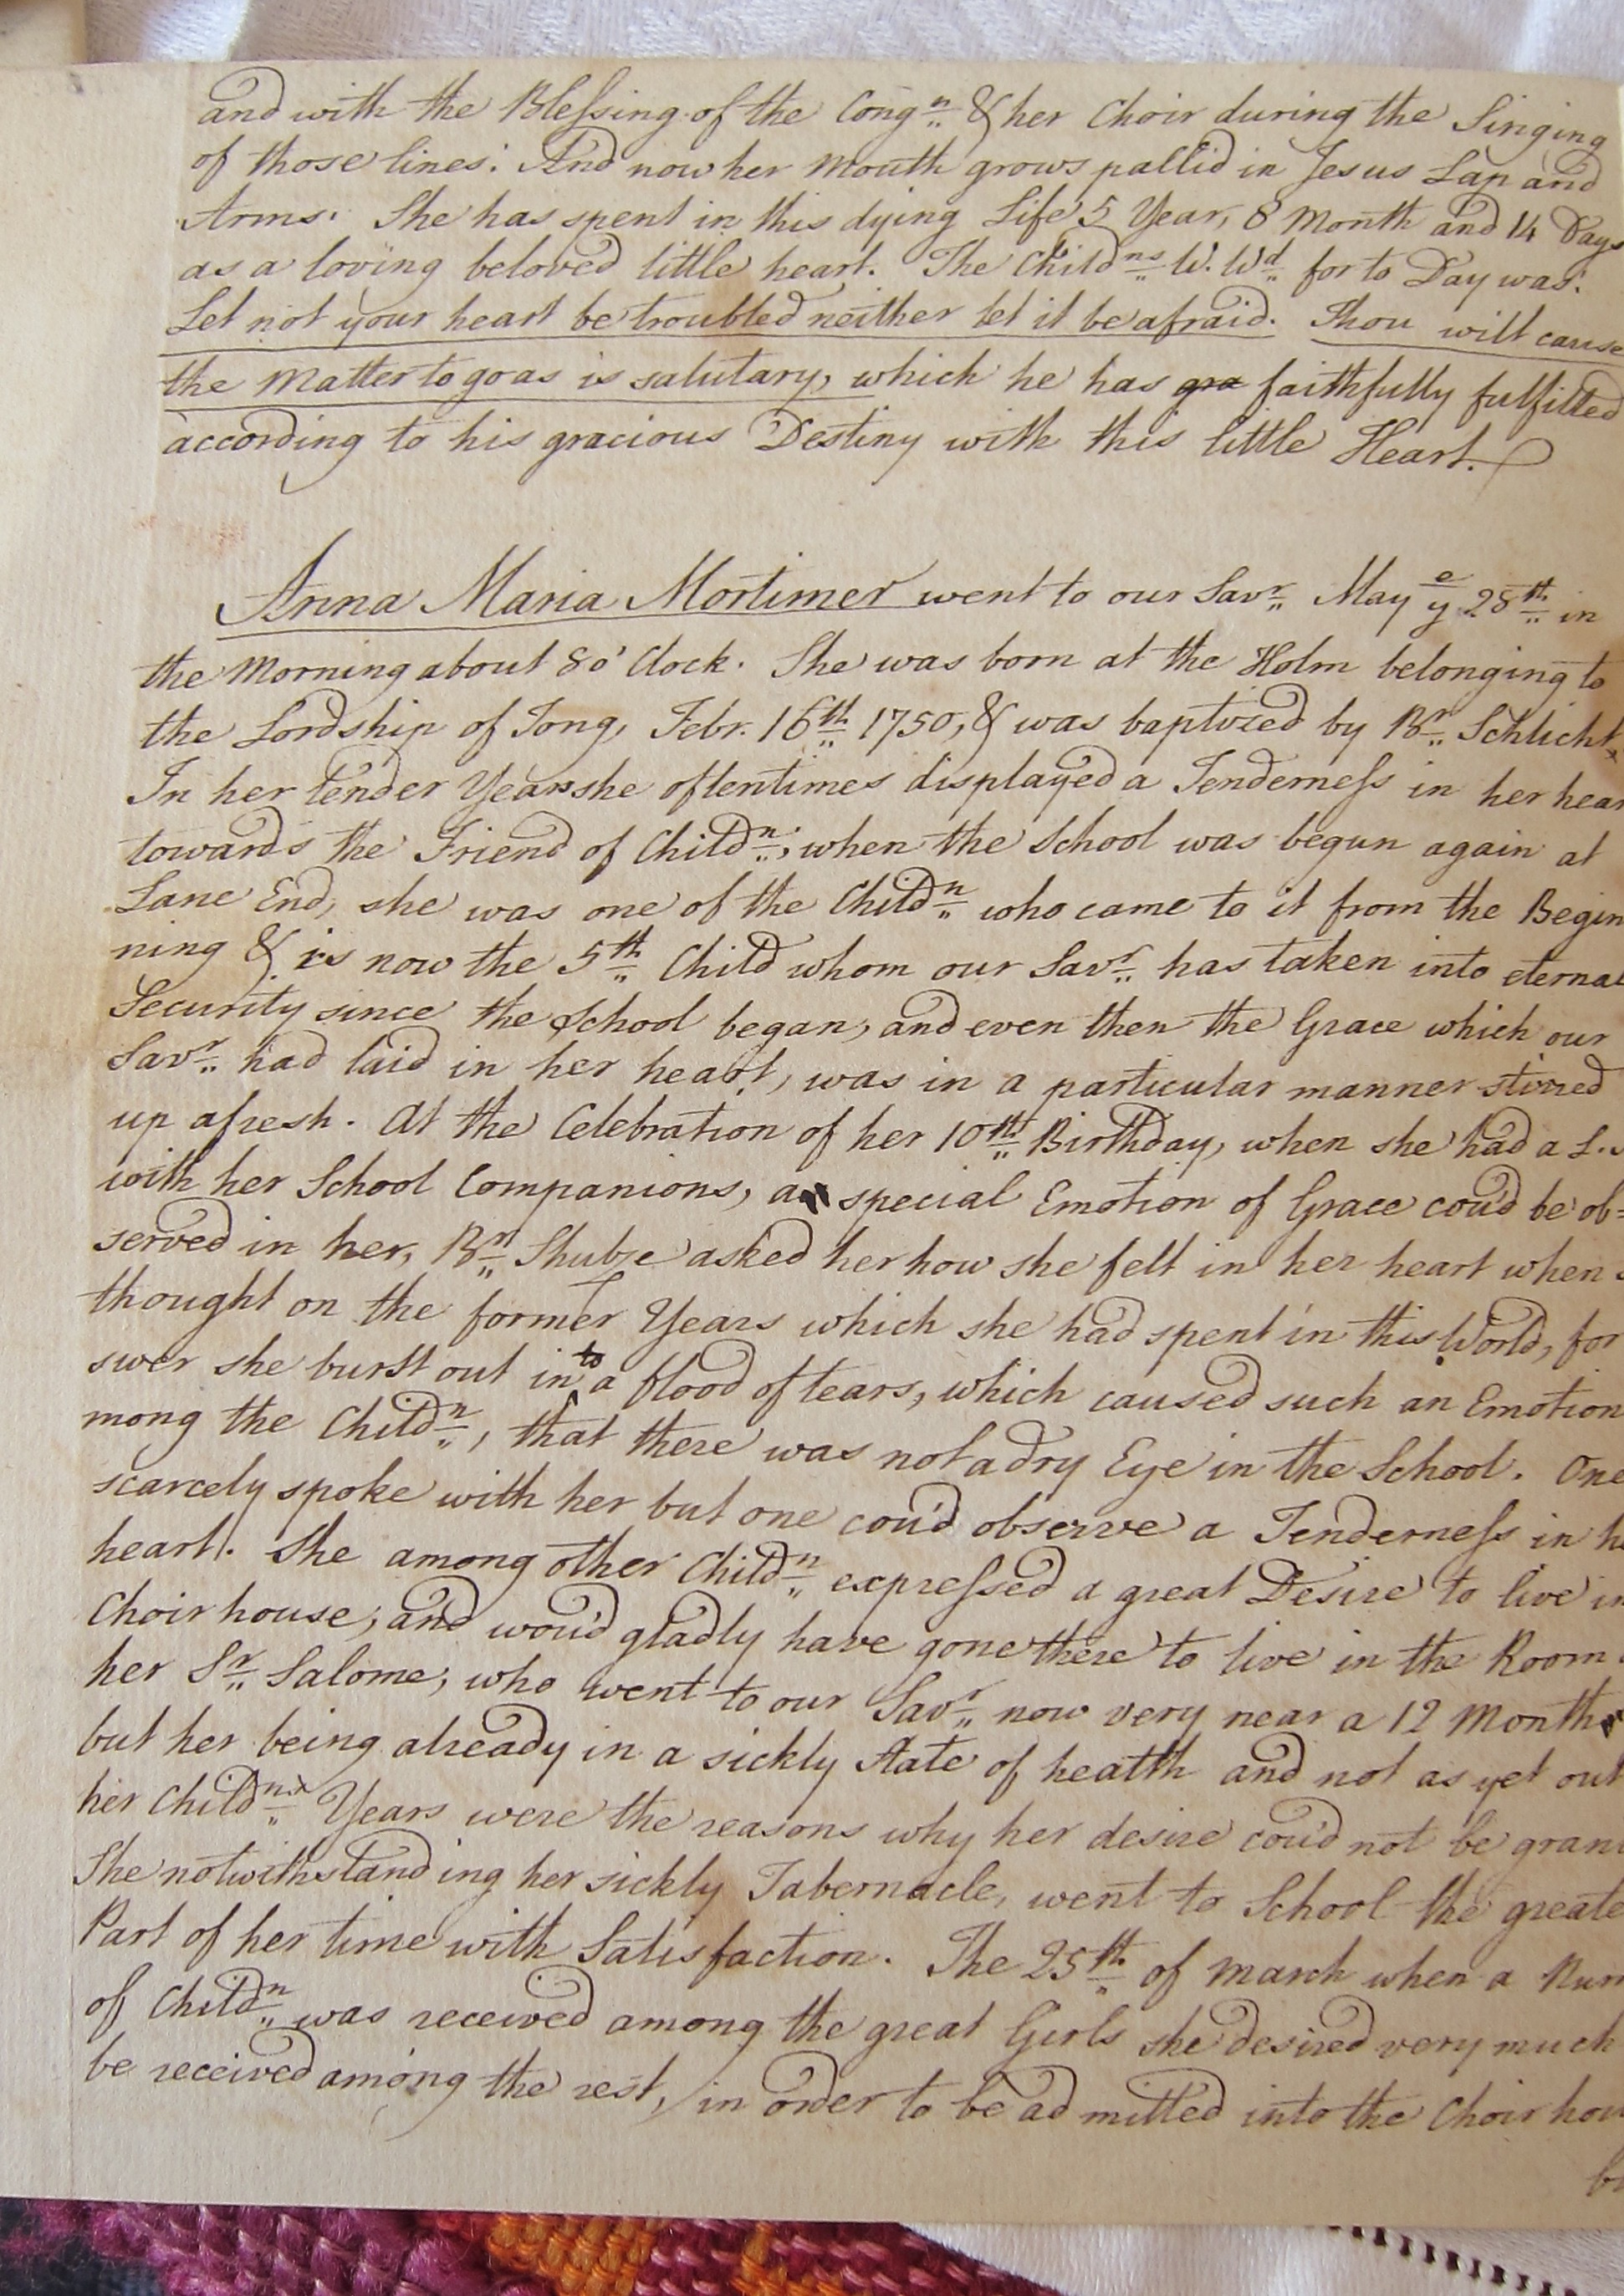 and with the Blessing of the Congn. & her Choir during the Singing
of those lines: And now her Mouth grows pallid in Jesus Lap and
Arms. She has spent in this dying Life 5 Year, 8 Month and 14 Days
as a loving beloved little heart. The Childns. W. Wd. for to Day was:
Let not your heart be troubled neither let it be afraid. Thou will cause
the Matter to go as is salutary, which he has gra faithfully fulfilled
according to his gracious Destiny with this little Heart.
Anna Maria Mortimer went to our Savr. May ye 28th. in
the Morning about 8 o'Clock. She was born at the Holm belonging to
the Lordship of Tong, Febr. 16th. 1750, & was baptized by Br. Schlicht
In her tender Years she oftentimes displayed a Tenderness in her hear
towards the Friend of Childn.; when the School was begun again at
Lane End, she was one of the Childn. who came to it from the Begin
ning & is now the 5th. Child whom our Savr. has taken into eternal
Security since the School began, and even then the Grace which our
Savr. had laid in her heart, was in a particular manner stirred
up afresh. At the Celebration of her 10th. Birthday, when she had a L.
with her School Companions, a special Emotion of Grace cou'd be ob=
served in her, Br. Shubze asked her how she felt in her heart when
thought on the former Years which she had spent in this World, for
swer she burst out into a flood of tears, which caused such an Emotion
mong the Childn., that there was not a dry Eye in the School. One
scarcely spoke with her but one cou'd observe a Tenderness in h
heart. She among other Childn. expressed a great Desire to live in
Choirhouse, and wou'd gladly have gone there to live in the Room
her Sr. Salome, who went to our Savr. now very near a 12 Month
but her being already in a sickly State of health and not as yet out
her Childns. Years were the reasons why her desire cou'd not be gran
She notwithstanding her sickly Tabernacle, went to School the greate
Part of her time with Satisfaction. The 25th. of March when a Num
of Childn. was received among the great Girls she desired very much
be received among the rest, in order to be admitted into the Choir hou